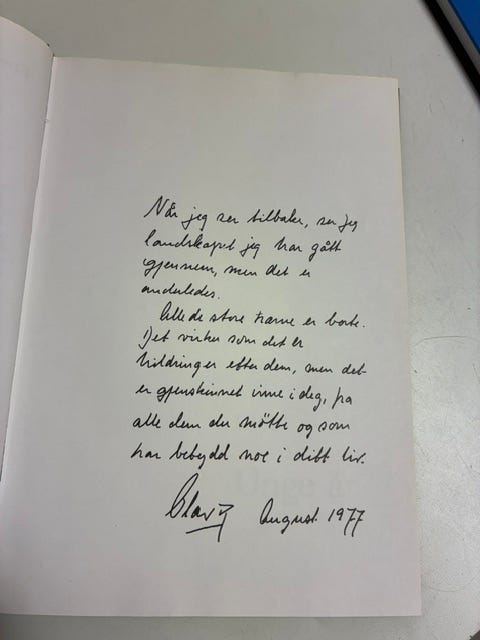 Når jeg ser tilbake, ser jeg
landskapet jeg har gått
gjennem, men det er
anderledes.
Alle de store trærne er borte.
Det virker som det er
hildringer etter dem, men det
er gjenskinnet inne i deg, fra
alle dem du møtte og som
har betydd noe i ditt liv.
Olav H August 1977